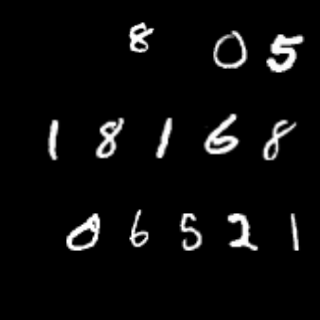 8 0 5
1 8 1 6 8
0 6 5 2 1